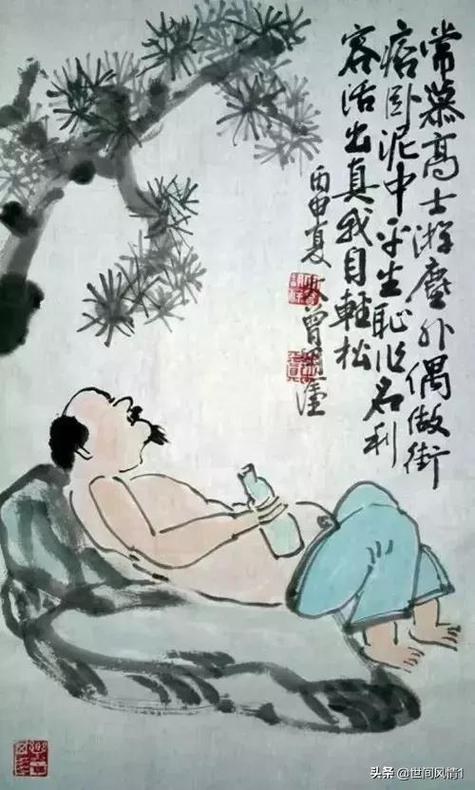 常慕高士游塵外偶做街
痞卧泥中平生恥作名利
客活出真我自輕松
丙申夏
头条 @世间风情1